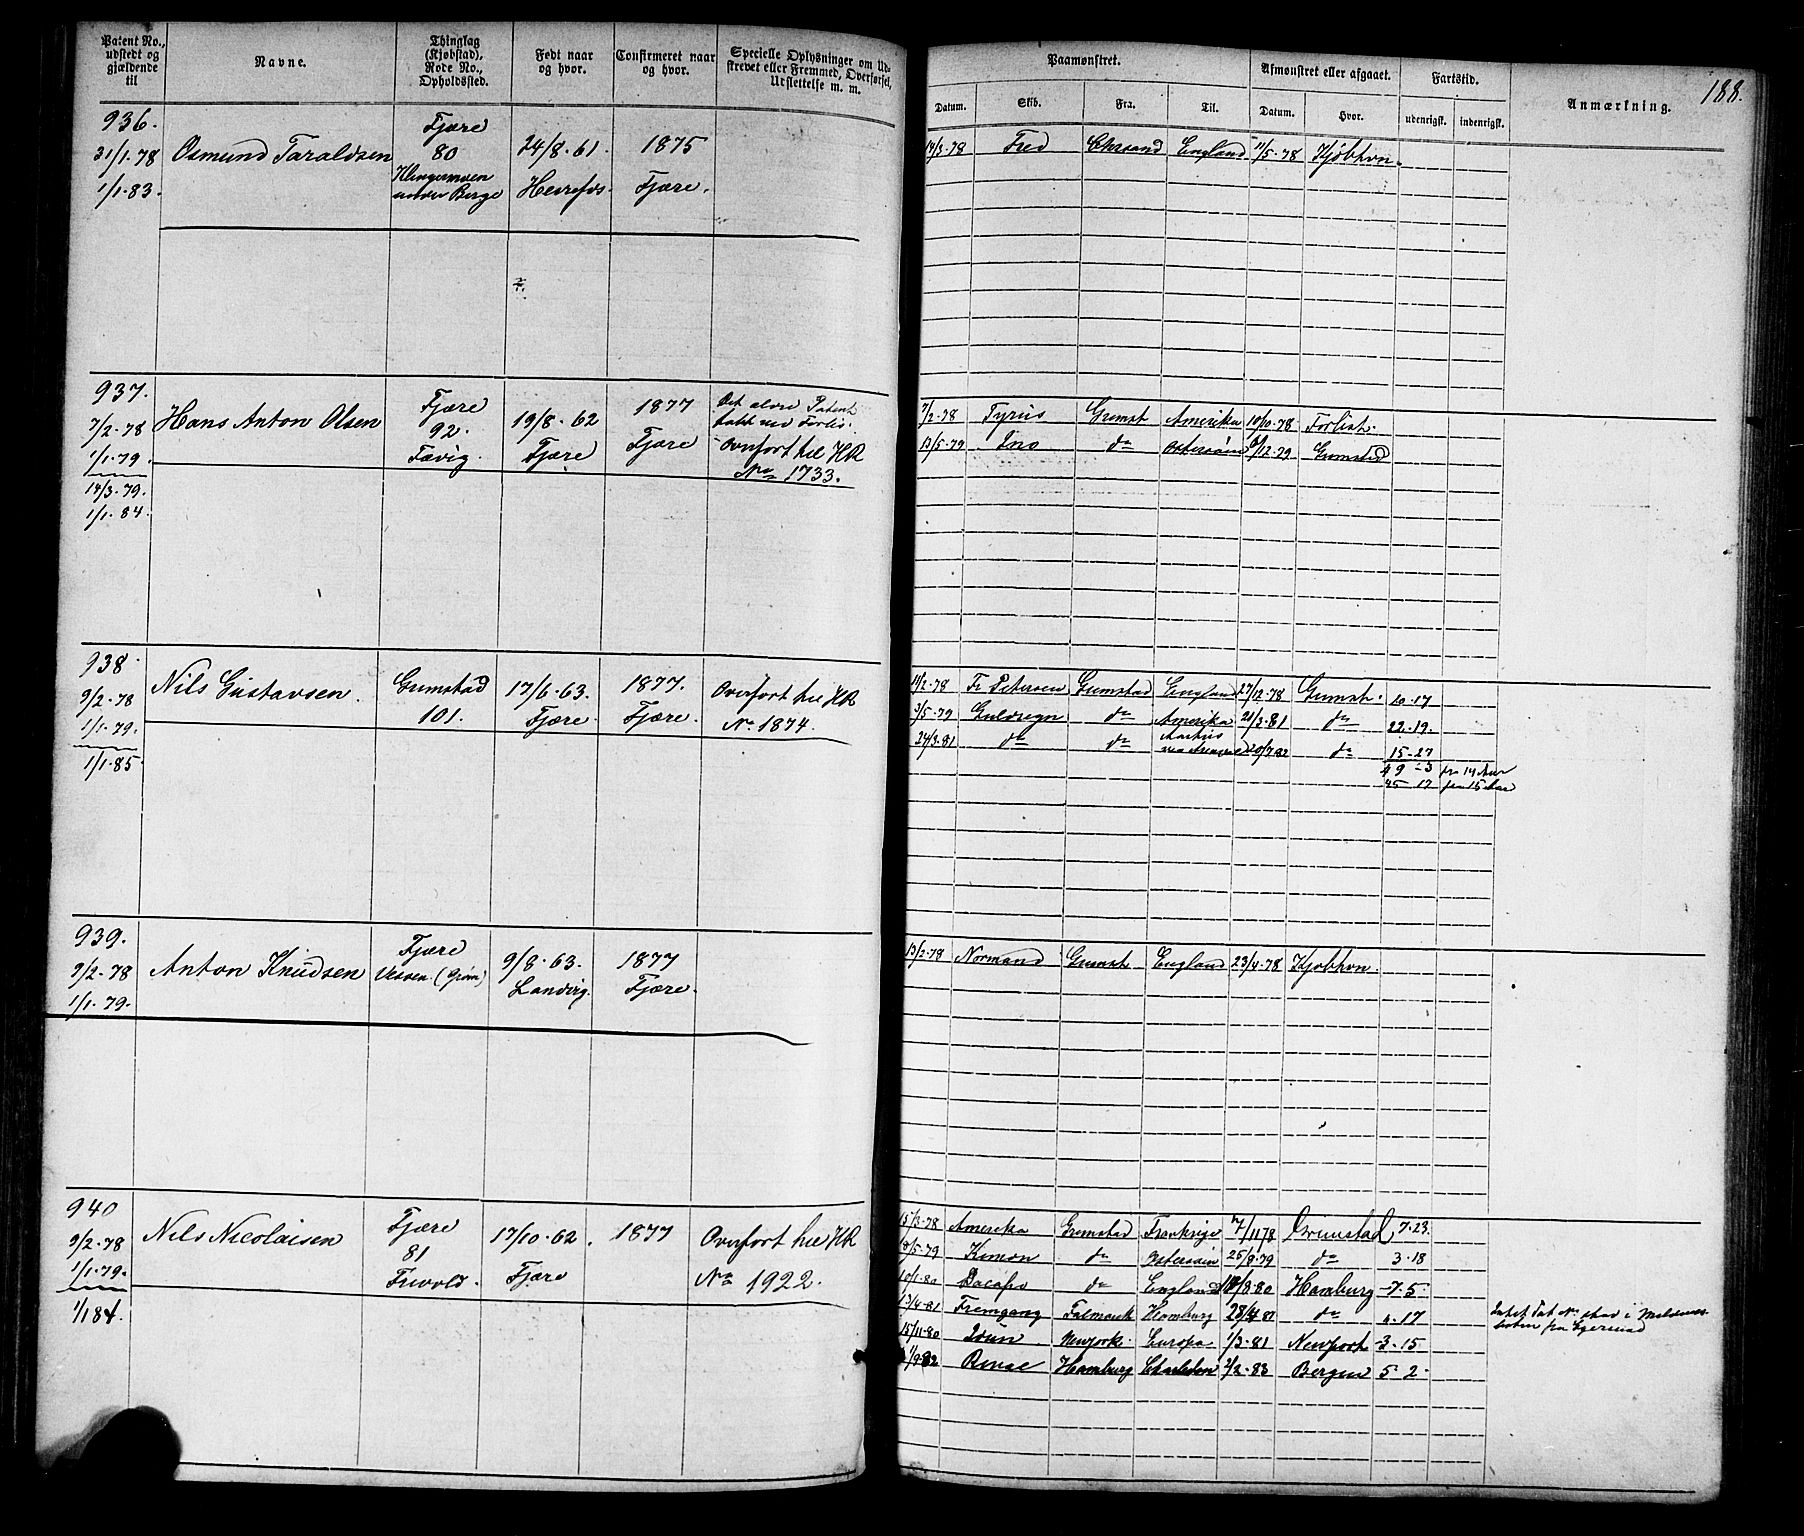 188.
Patent No., udstedt og gjældende til
Navne.
Thinglag (Kjøbstad), Rode No., Opholdssted.
Født naar og hvor.
Confirmeret naar og hvor.
Specielle Oplysninger om Udskrevet eller Fremmed, Overførsel, Udslettelse m. m.
Paamønstret.
Afmønstret eller afgaaet.
Fartstid.
Anmærkning.
Datum. Skib. Fra. Til. Datum. Hvor. udenrigsk. indenrigsk.
936.
31/1.78
1/1.83.
Osmund Taraldsen
Fjære
80
under Berge
24/8.61.
Herefos.
1875
Fjære.
14/3.78 Fred Chrsand England 11/5.78 Kjøbhvn.
937.
7/2.78
1/1.79.
14/3.79.
1/1.84.
Hans Anton Olsen
Fjære
92.
Fævig.
19/8.62
Fjære
1877
Fjære
Det ældre Patent
tabt ved Forlis.
Overført til HR
No 1733.
7/2.78 Tyrus Grimst Amerika 10/10.78 Forlist.
13/5.79 Ino do Østersøen /12.79 Grimstad
938
9/2.78
1/1.79.
1/1.85
Nils Gustavsen.
Grimstad
101.
17/6.63.
Fjære.
1877.
Fjære.
Overført til HR
No 1874.
11/2.78 Fr Petersen Grimstad England 27/12.78 Grimst. 10.17
3/5.79 Guldregn do Amerika 21/3.81 do 22.19.
24/3.81 do do do 15-27
49 -3 fra 14 Aar
45 17 fra 15 Aar
939.
9/2.78
1/1.79.
Anton Knudsen
Fjære
Vessøen (Grim)
9/8.63.
Landvig.
1877
Fjære.
13/2.78 Normand Grimst England 23/4.78 Kjøbhvn.
940
9/2.78
1/1.79.
1/1 84.
Nils Nicolaisen
Fjære
81
Frivold.
17/10.62.
Fjære
1877
Overført til HR
No 1922.
15/3.78 Amerika Grimstad Frankrige 7/11 78 Grimstad 7.23
8/5.79 Kimon do Østersøen 25/8.79 do 3.18
10/1.80 Dacapo do England /8.80 Hamburg 7.5
13/4.81 Fremgang Falmouth Hamburg 28/4 81 do .17
15/11.80 Idun Newyork. Europa 1/3.81 Newport 3.15
Hamburg Charleston 2/2.83 Bergen 5.2